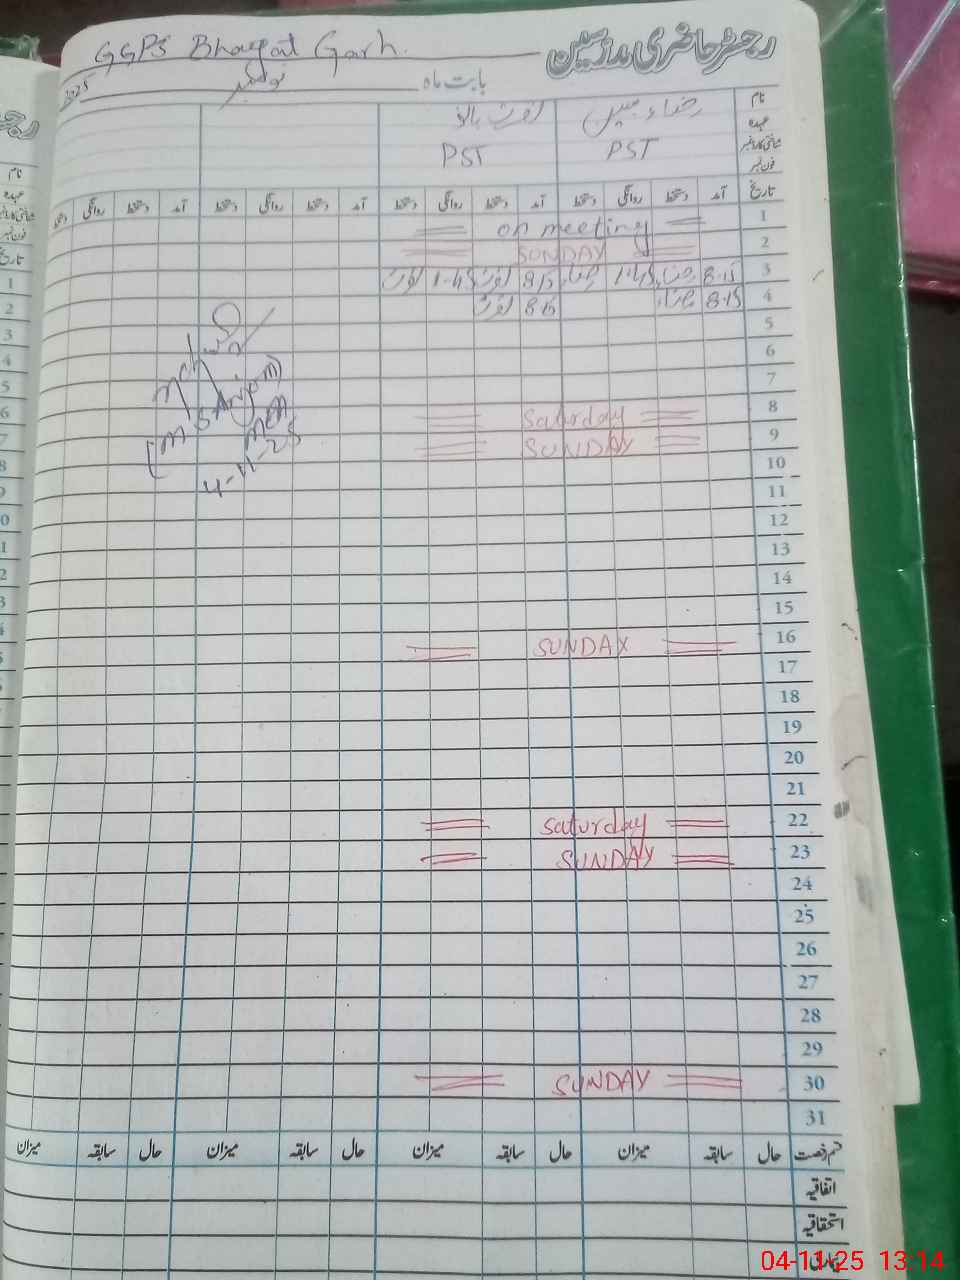 GGPS Bhagat Garh. رجسٹر حاضری مدرسین
بابت ماہ نومبر 2025
نام
عہدہ PST PST
شناختی کارڈ نمبر
فون نمبر
تاریخ آمد دستخط روانگی دستخط آمد دستخط روانگی دستخط آمد دستخط روانگی دستخط آمد دستخط روانگی دستخط
1 on meeting
2 SUNDAY
3 8-15 1-45 8-15 1-45
4 8-15 8-15
5
6
7
8 Saturday
9 SUNDAY
10
11
12
13
14
15
16 SUNDAY
17
18
19
20
21
22 Saturday
23 SUNDAY
24
25
26
27
28
29
30 SUNDAY
31
4-11-25
قسم رخصت حال سابقہ میزان حال سابقہ میزان حال سابقہ میزان حال سابقہ میزان
اتفاقیہ
استحقاقیہ
بیماری
04-11-25 13:14